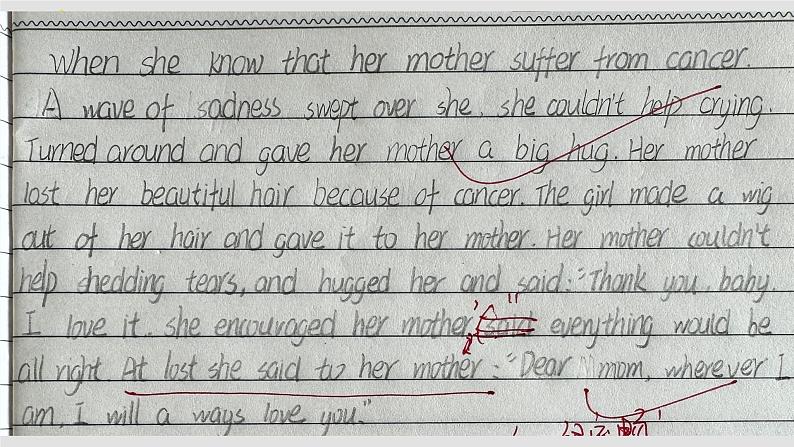 When she know that her mother suffer from cancer.
A wave of sadness swept over she. she couldn't help crying.
Turned around and gave her mother a big hug. Her mother
lost her beautiful hair because of cancer. The girl made a wig
out of her hair and gave it to her mother. Her mother couldn't
help shedding tears, and hugged her and said: "Thank you, baby.
I love it. she encouraged her mother, said everything would be
all right. At last she said to her mother: "Dear mom, wherever I
am, I will a ways love you."